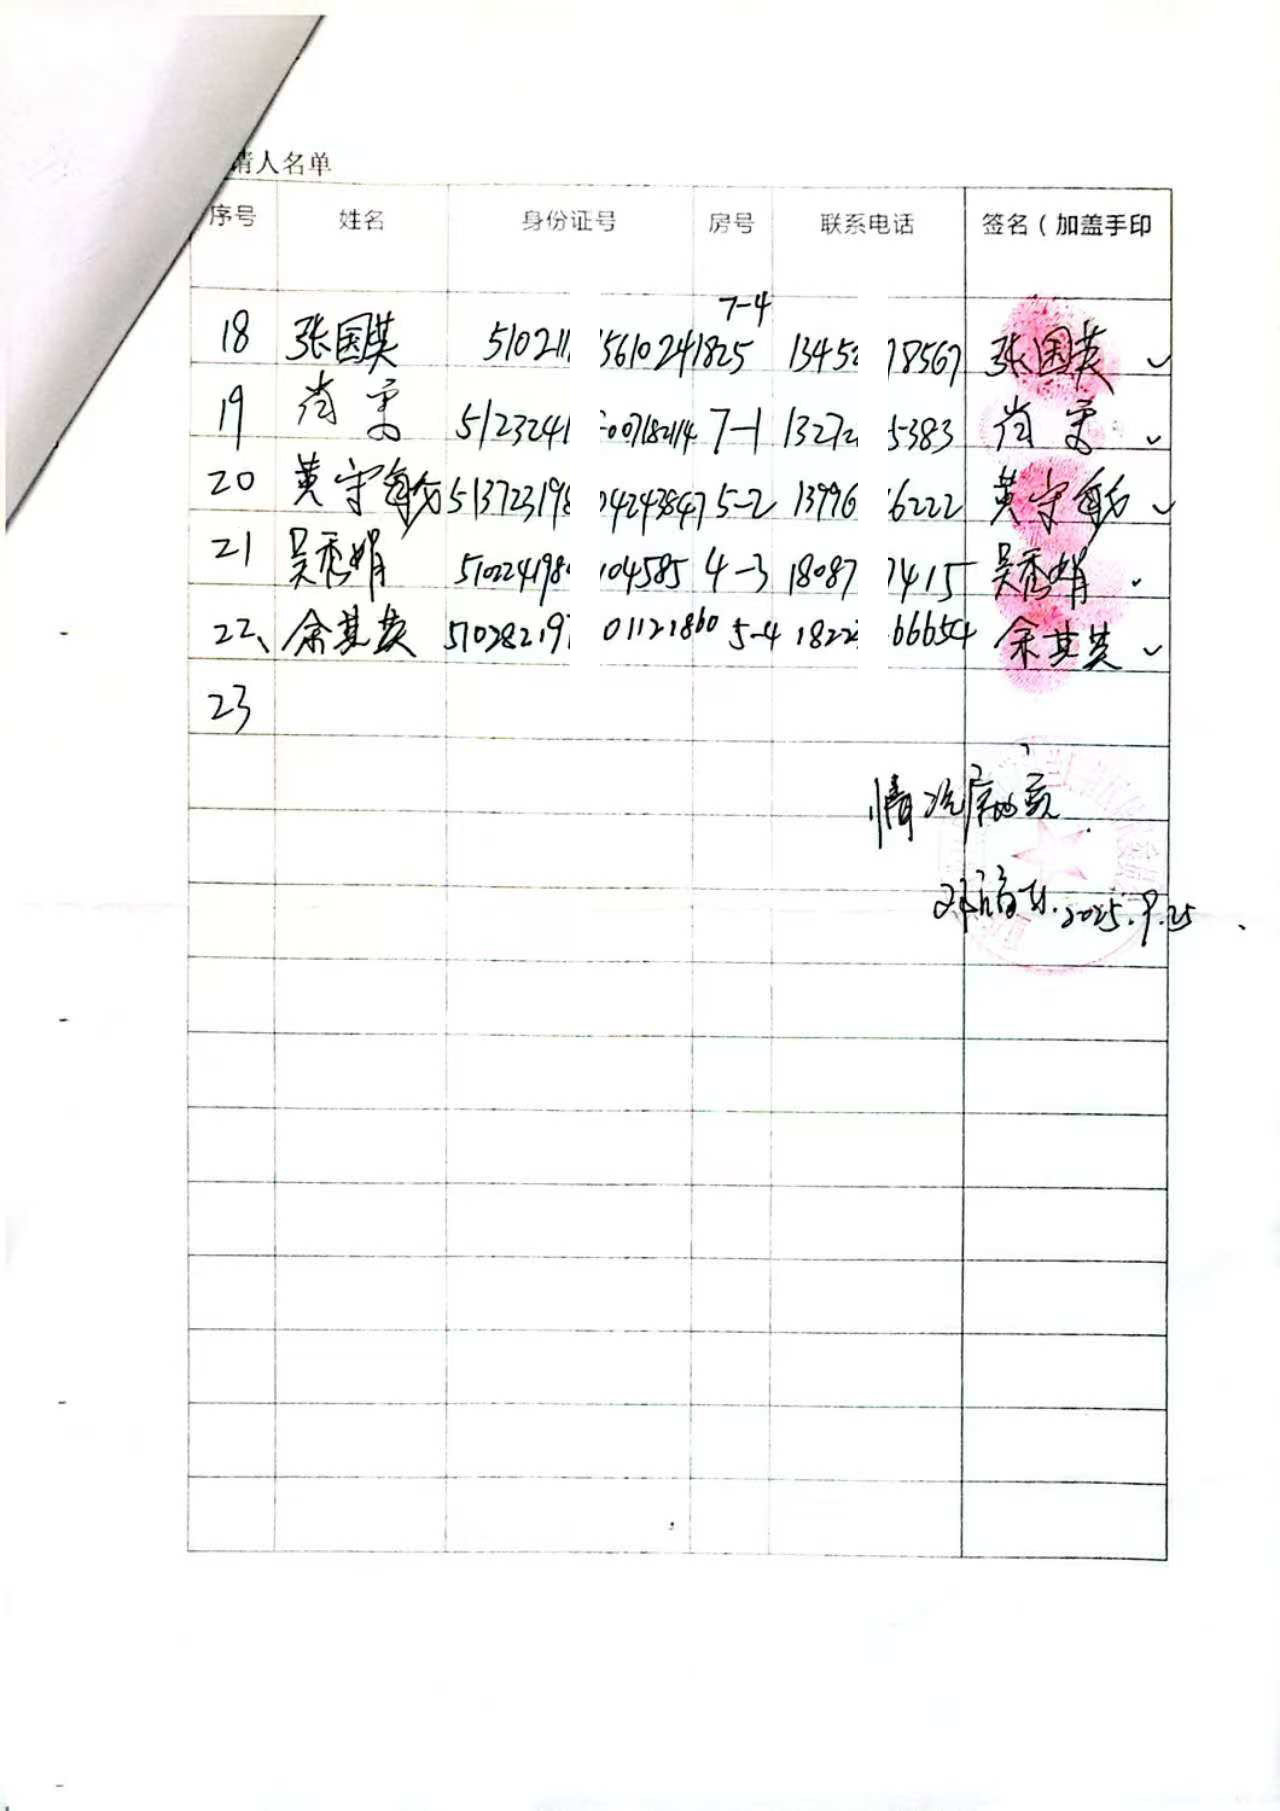 请人名单
序号 姓名 身份证号 房号 联系电话 签名（加盖手印
18 张国英 510211 5610241825 7-4 1345 78567 张国英
19 肖雪 5123241 007182114 7-1 1327 5383 肖雪
20 黄守 51372319 04243847 5-2 13996 6222 黄守
21 吴秀娟 51022419 104585 4-3 18087 7415 吴秀娟
22、余其英 51028219 01121860 5-4 1822 66654 余其英
23
情况属实
2025.9.25